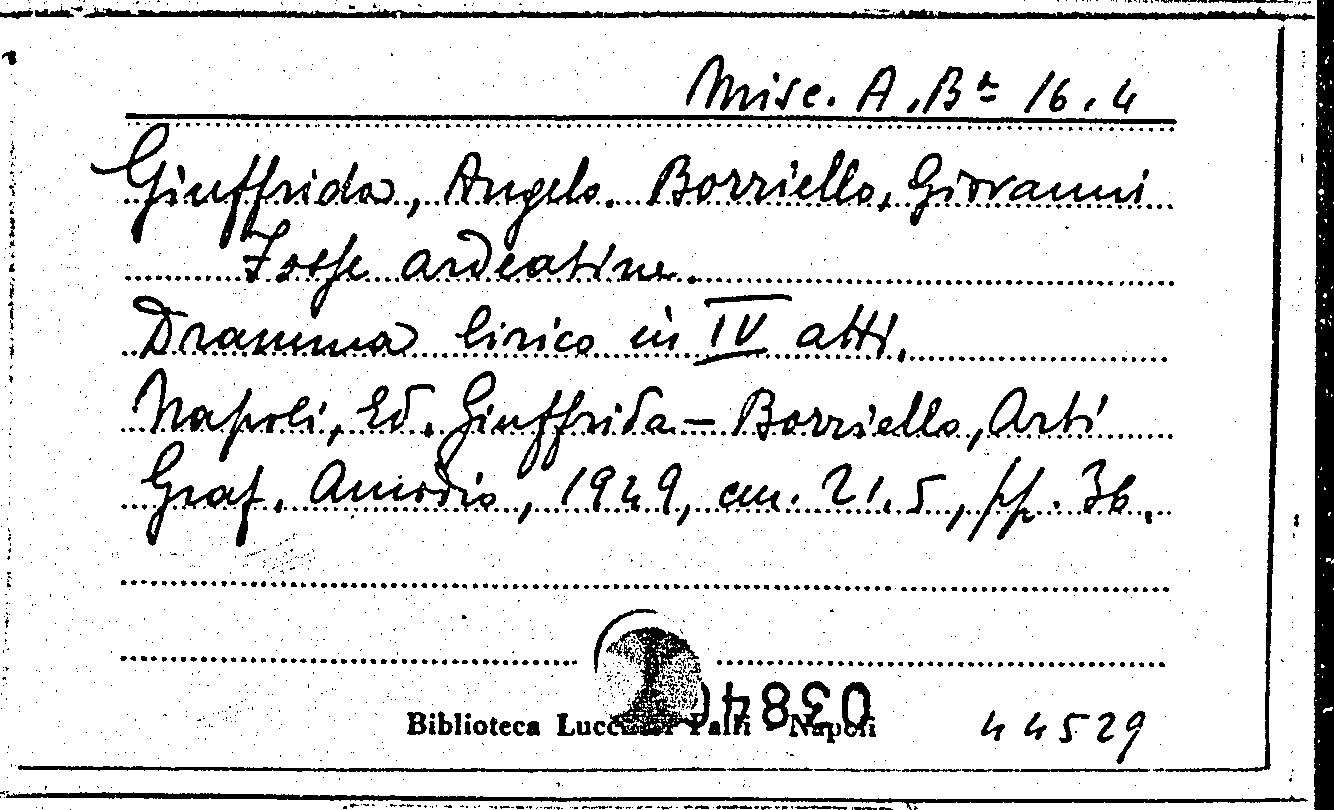 Misc. A. Bta 16.4
Giuffrida, Angelo. Borriello, Giovanni
Fosse ardeatine.
Dramma lirico in IV atti.
Napoli, Ed. Giuffrida - Borriello, Arti
Graf. Amodio, 1949, cm. 21.5, pp. 36.
Biblioteca Palli Napoli
44529